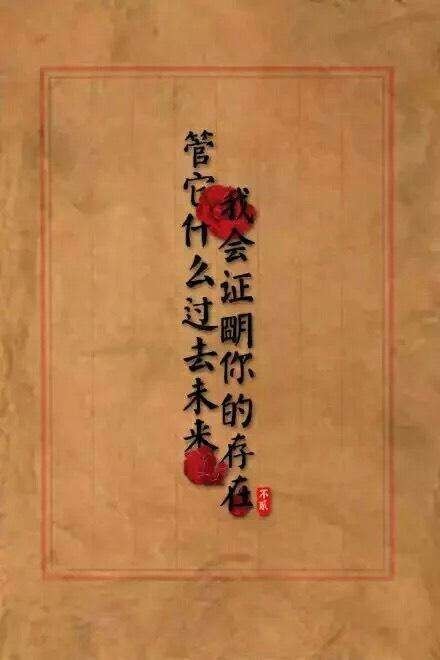 管它什么过去未来
我会证明你的存在
不贰